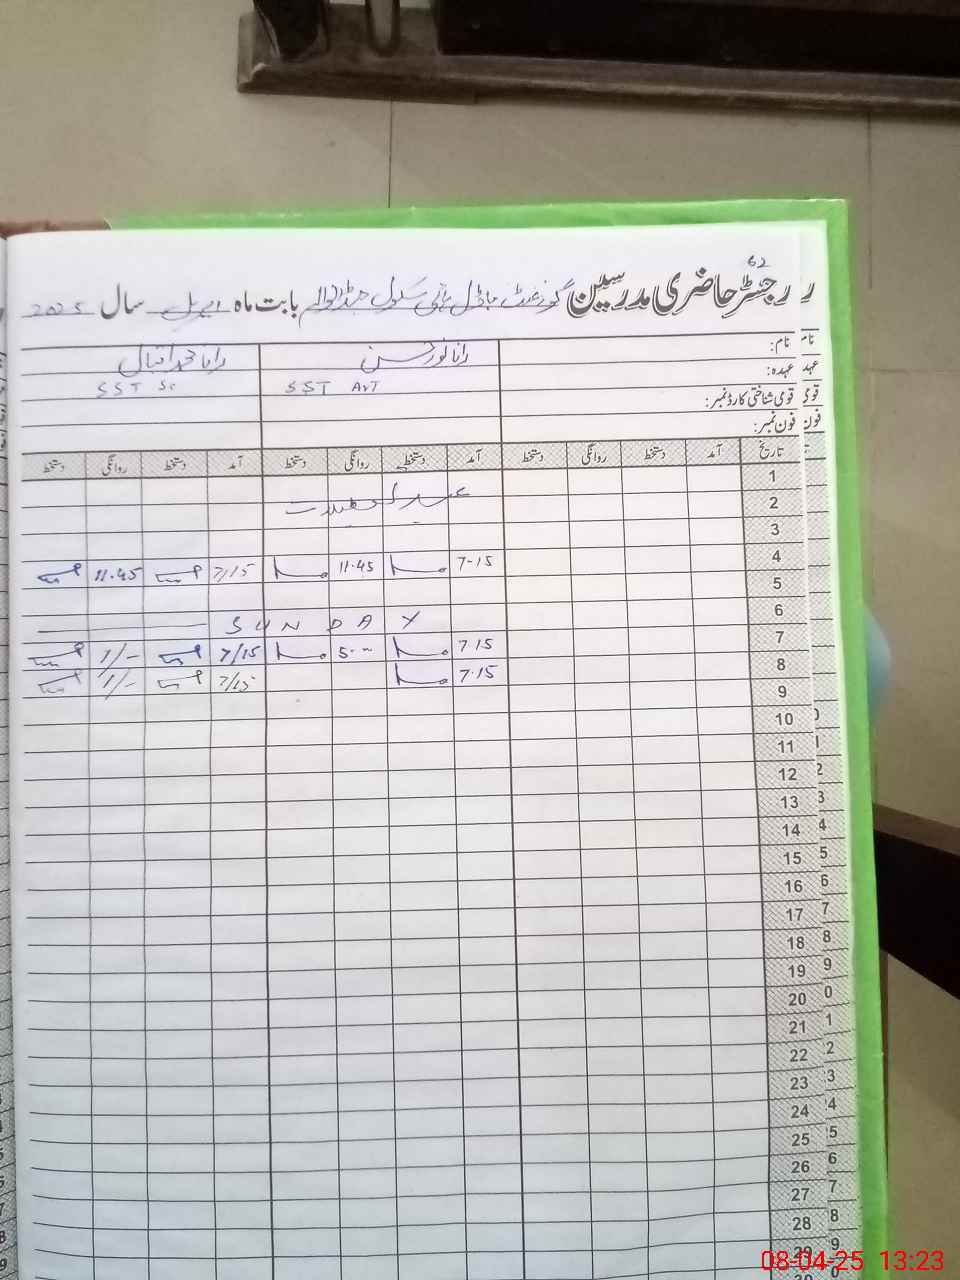 62
رجسٹر حاضری مدرسین گورنمنٹ ماڈل ہائی سکول بابت ماہ اپریل سال 2025
نام: رانا نور حسن رانا محمد اقبال
عہدہ: SST Art SST Sc
قومی شناختی کارڈ نمبر:
فون نمبر:
تاریخ آمد دستخط روانگی دستخط آمد دستخط روانگی دستخط آمد دستخط روانگی دستخط
1
2 عید
3
4 7-15 11.45 7/15 11.45
5
6 SUNDAY
7 7.15 5.- 7/15 1/-
8 7.15 7/15 1/-
9
10
11
12
13
14
15
16
17
18
19
20
21
22
23
24
25
26
27
28
29
08-04-25 13:23